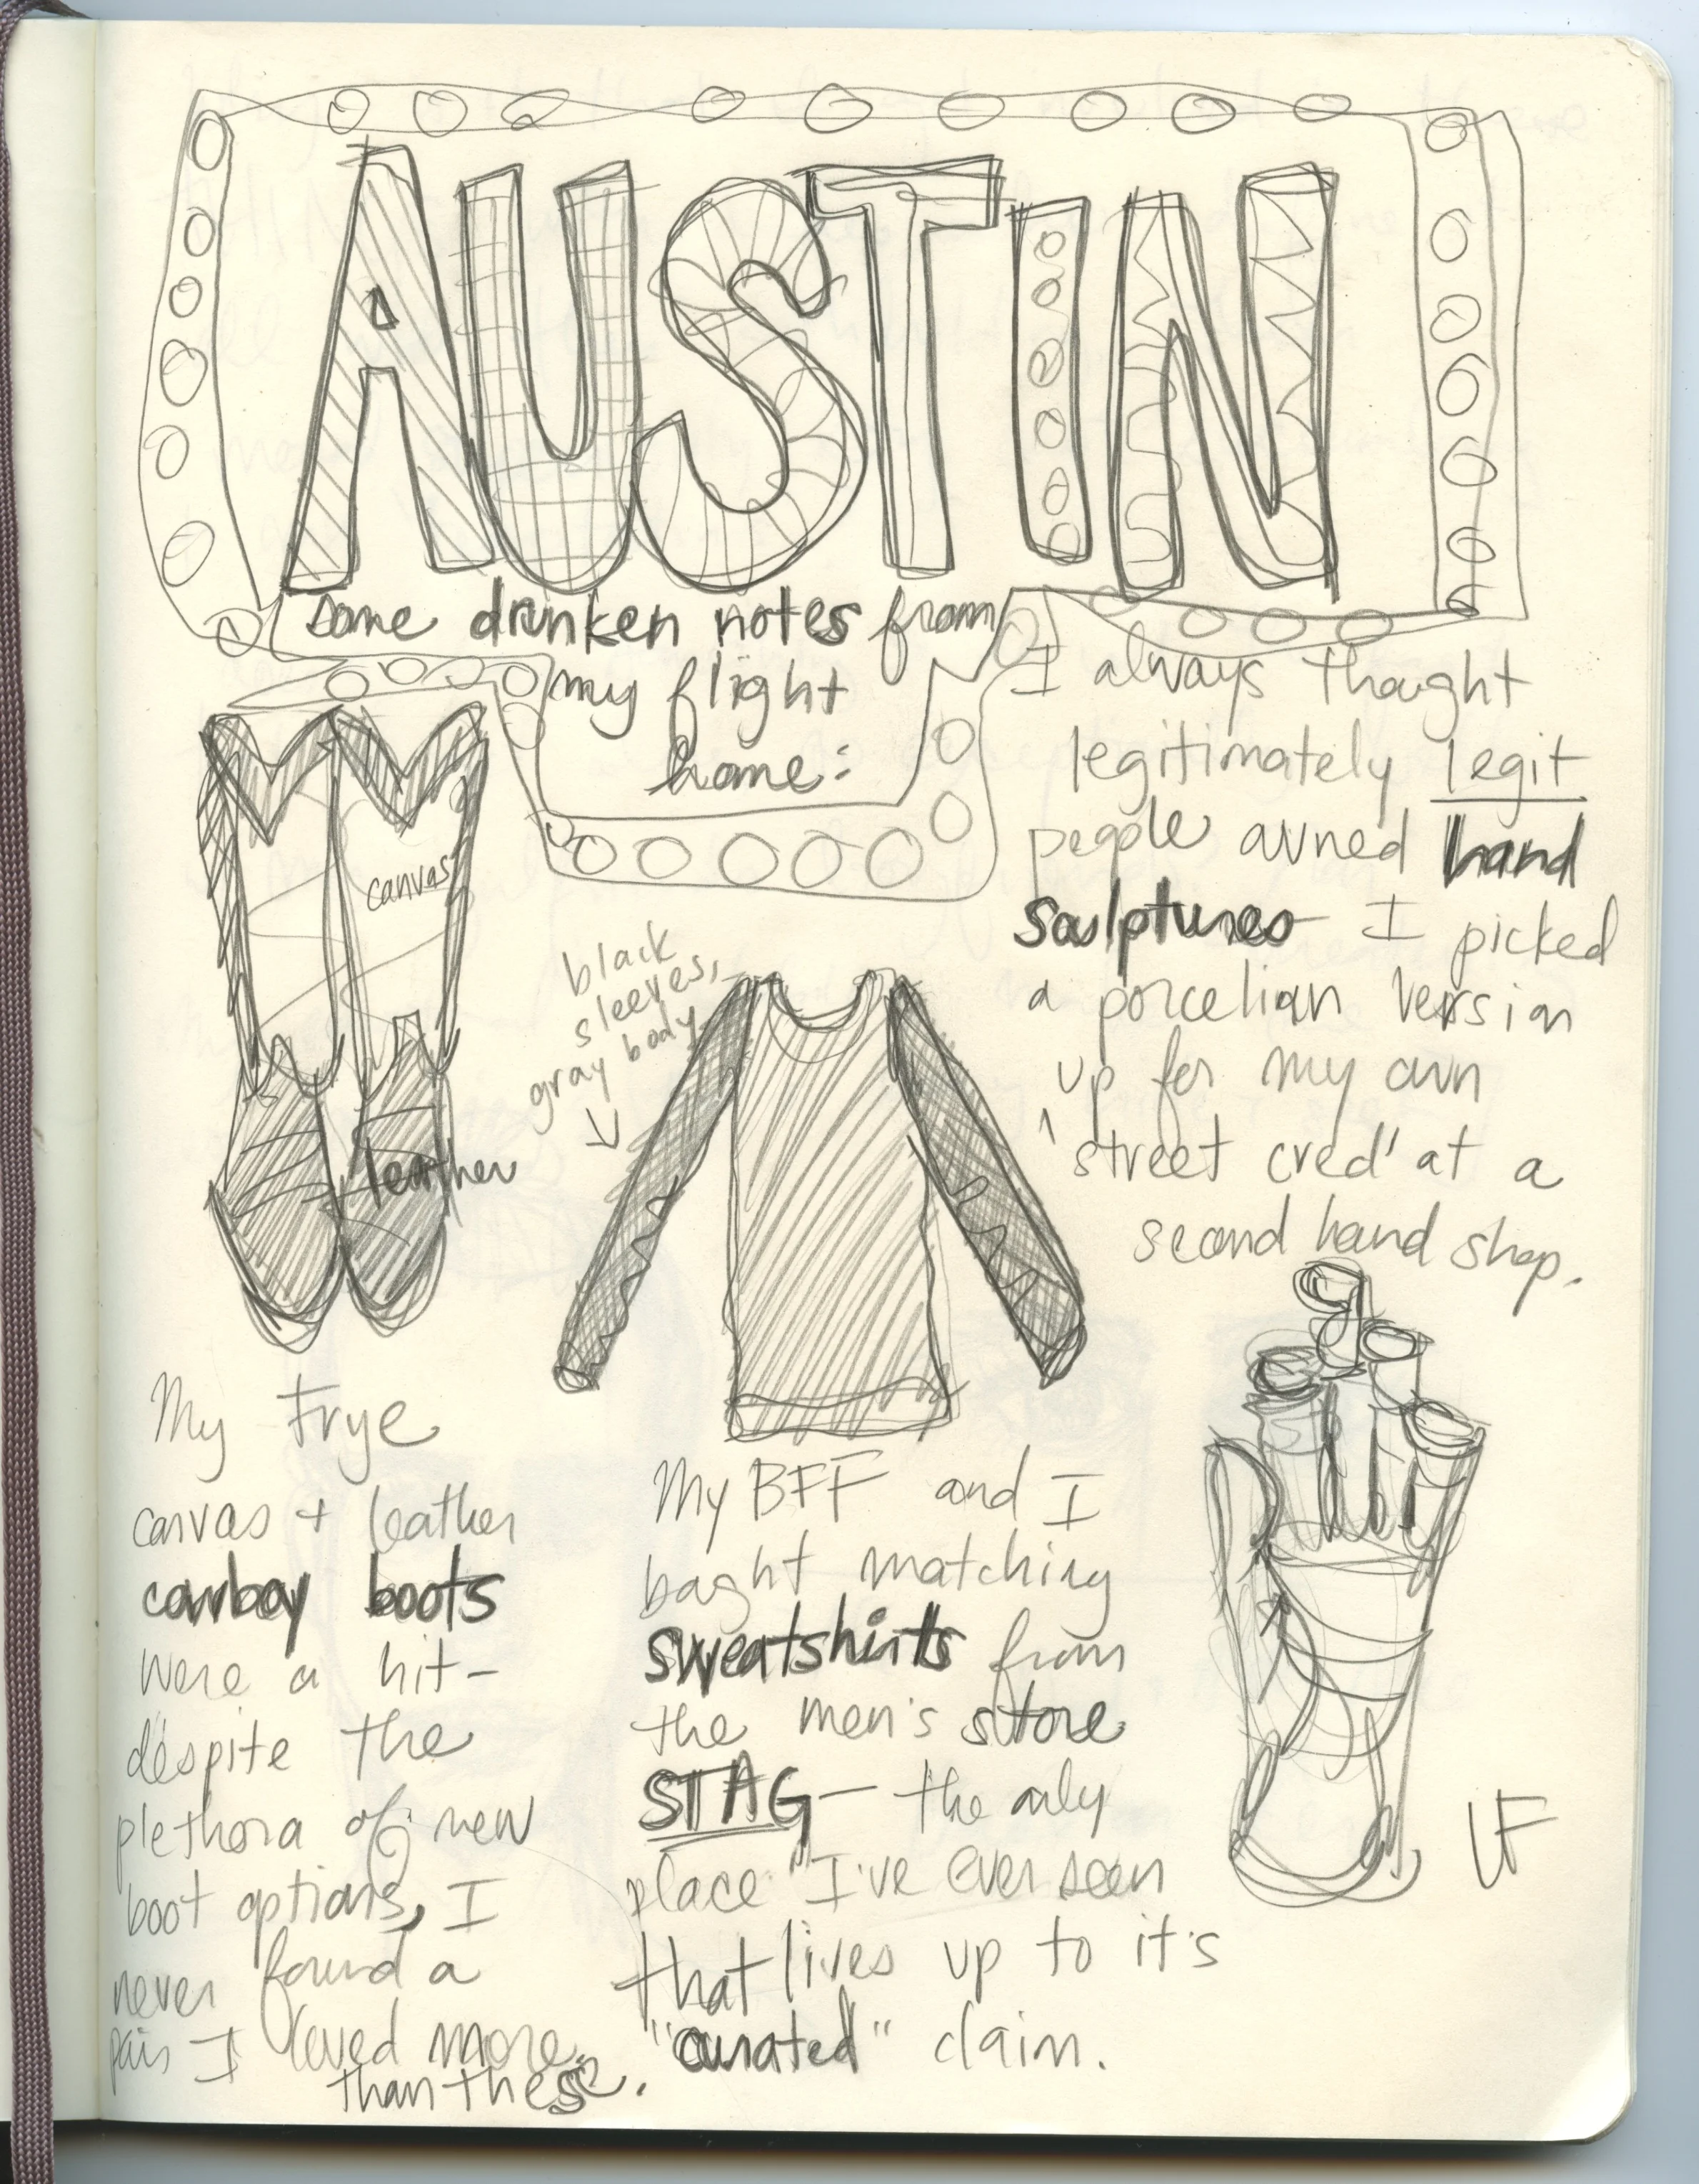 AUSTIN
some drunken notes from
my flight
home:
canvas
leather
black
sleeves,
gray body
I always thought
legitimately legit
people owned hand
sculptures I picked
a porcelian version
up for my own
'street cred' at a
second hand shop.
My Frye
canvas + leather
cowboy boots
were a hit-
despite the
plethora of new
boot options, I
never found a
pair I loved more
than these.
My BFF and I
boght matching
sweatshirts from
the men's store
STAG- the only
place I've ever seen
that lives up to it's
"curated" claim.
LF